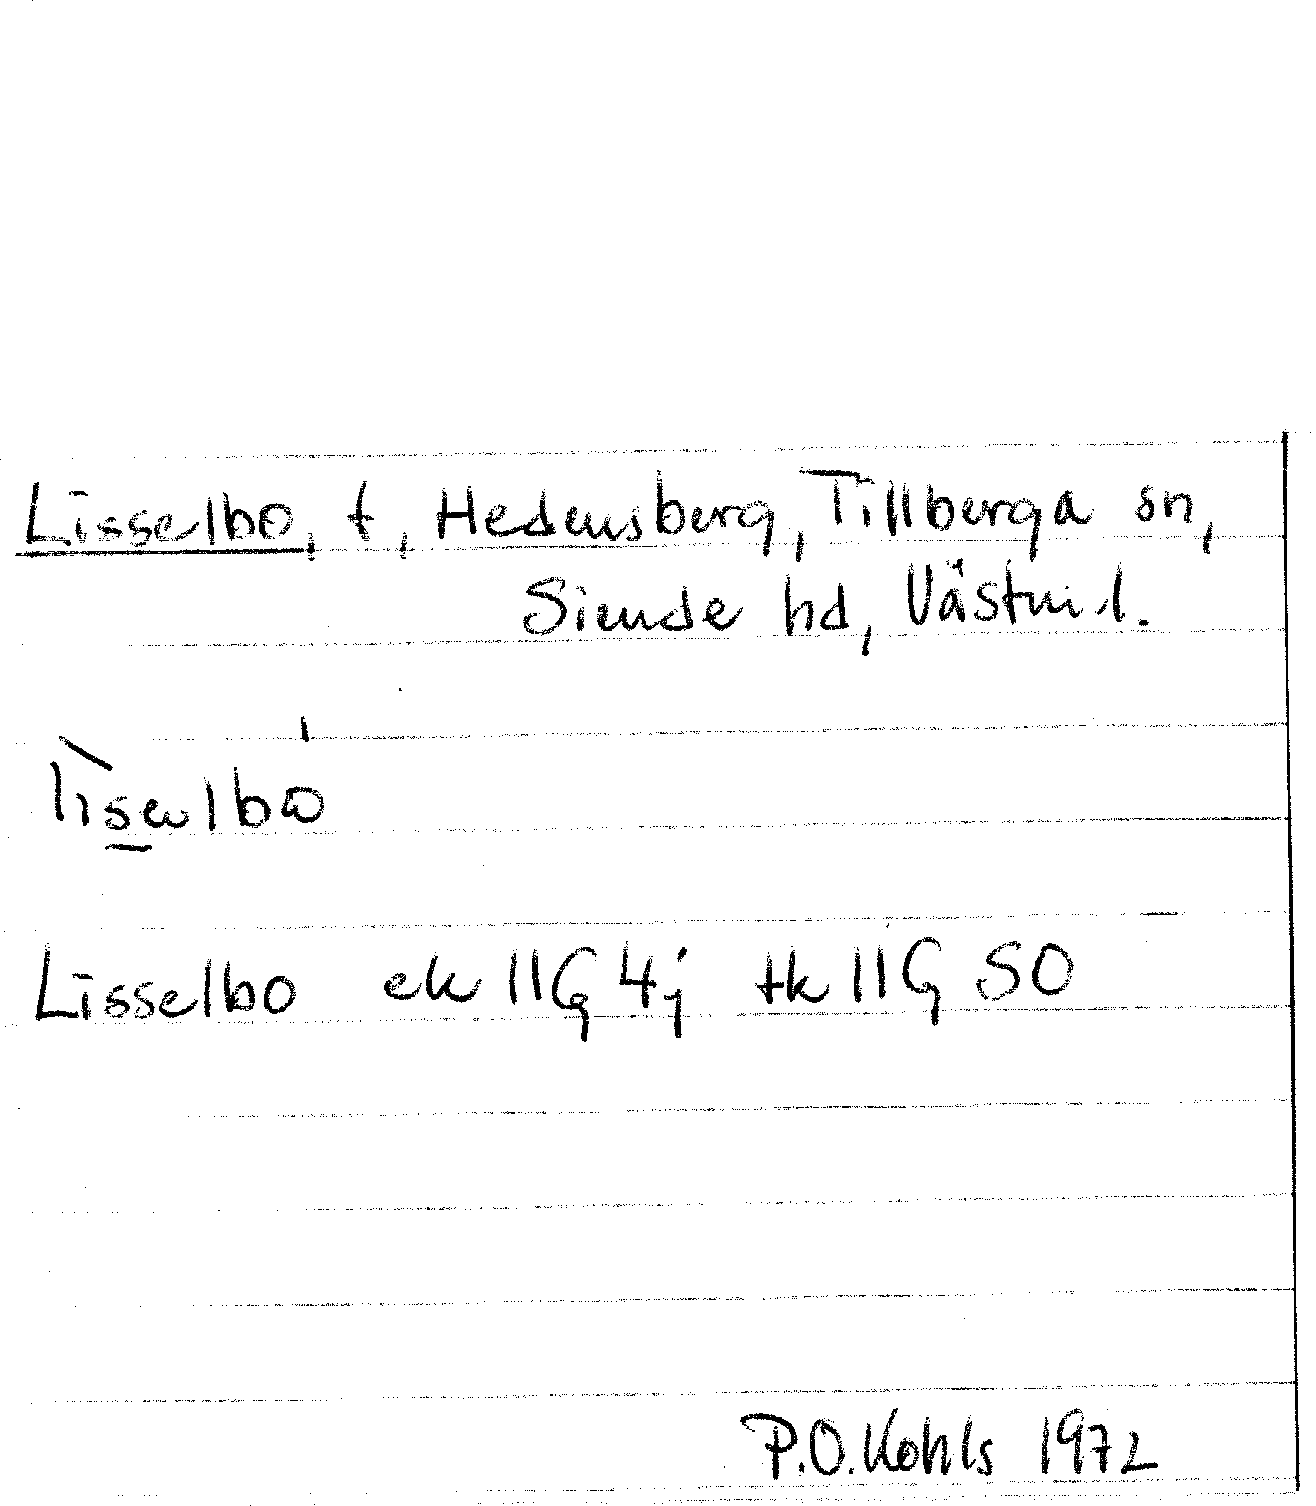 Lisselbo, t, Hedensberg, Tillberga sn,
Siende hd, Västm. l.
Lisselbo ek 11G 4j tk 11G SO
P.O. Kohls 1972